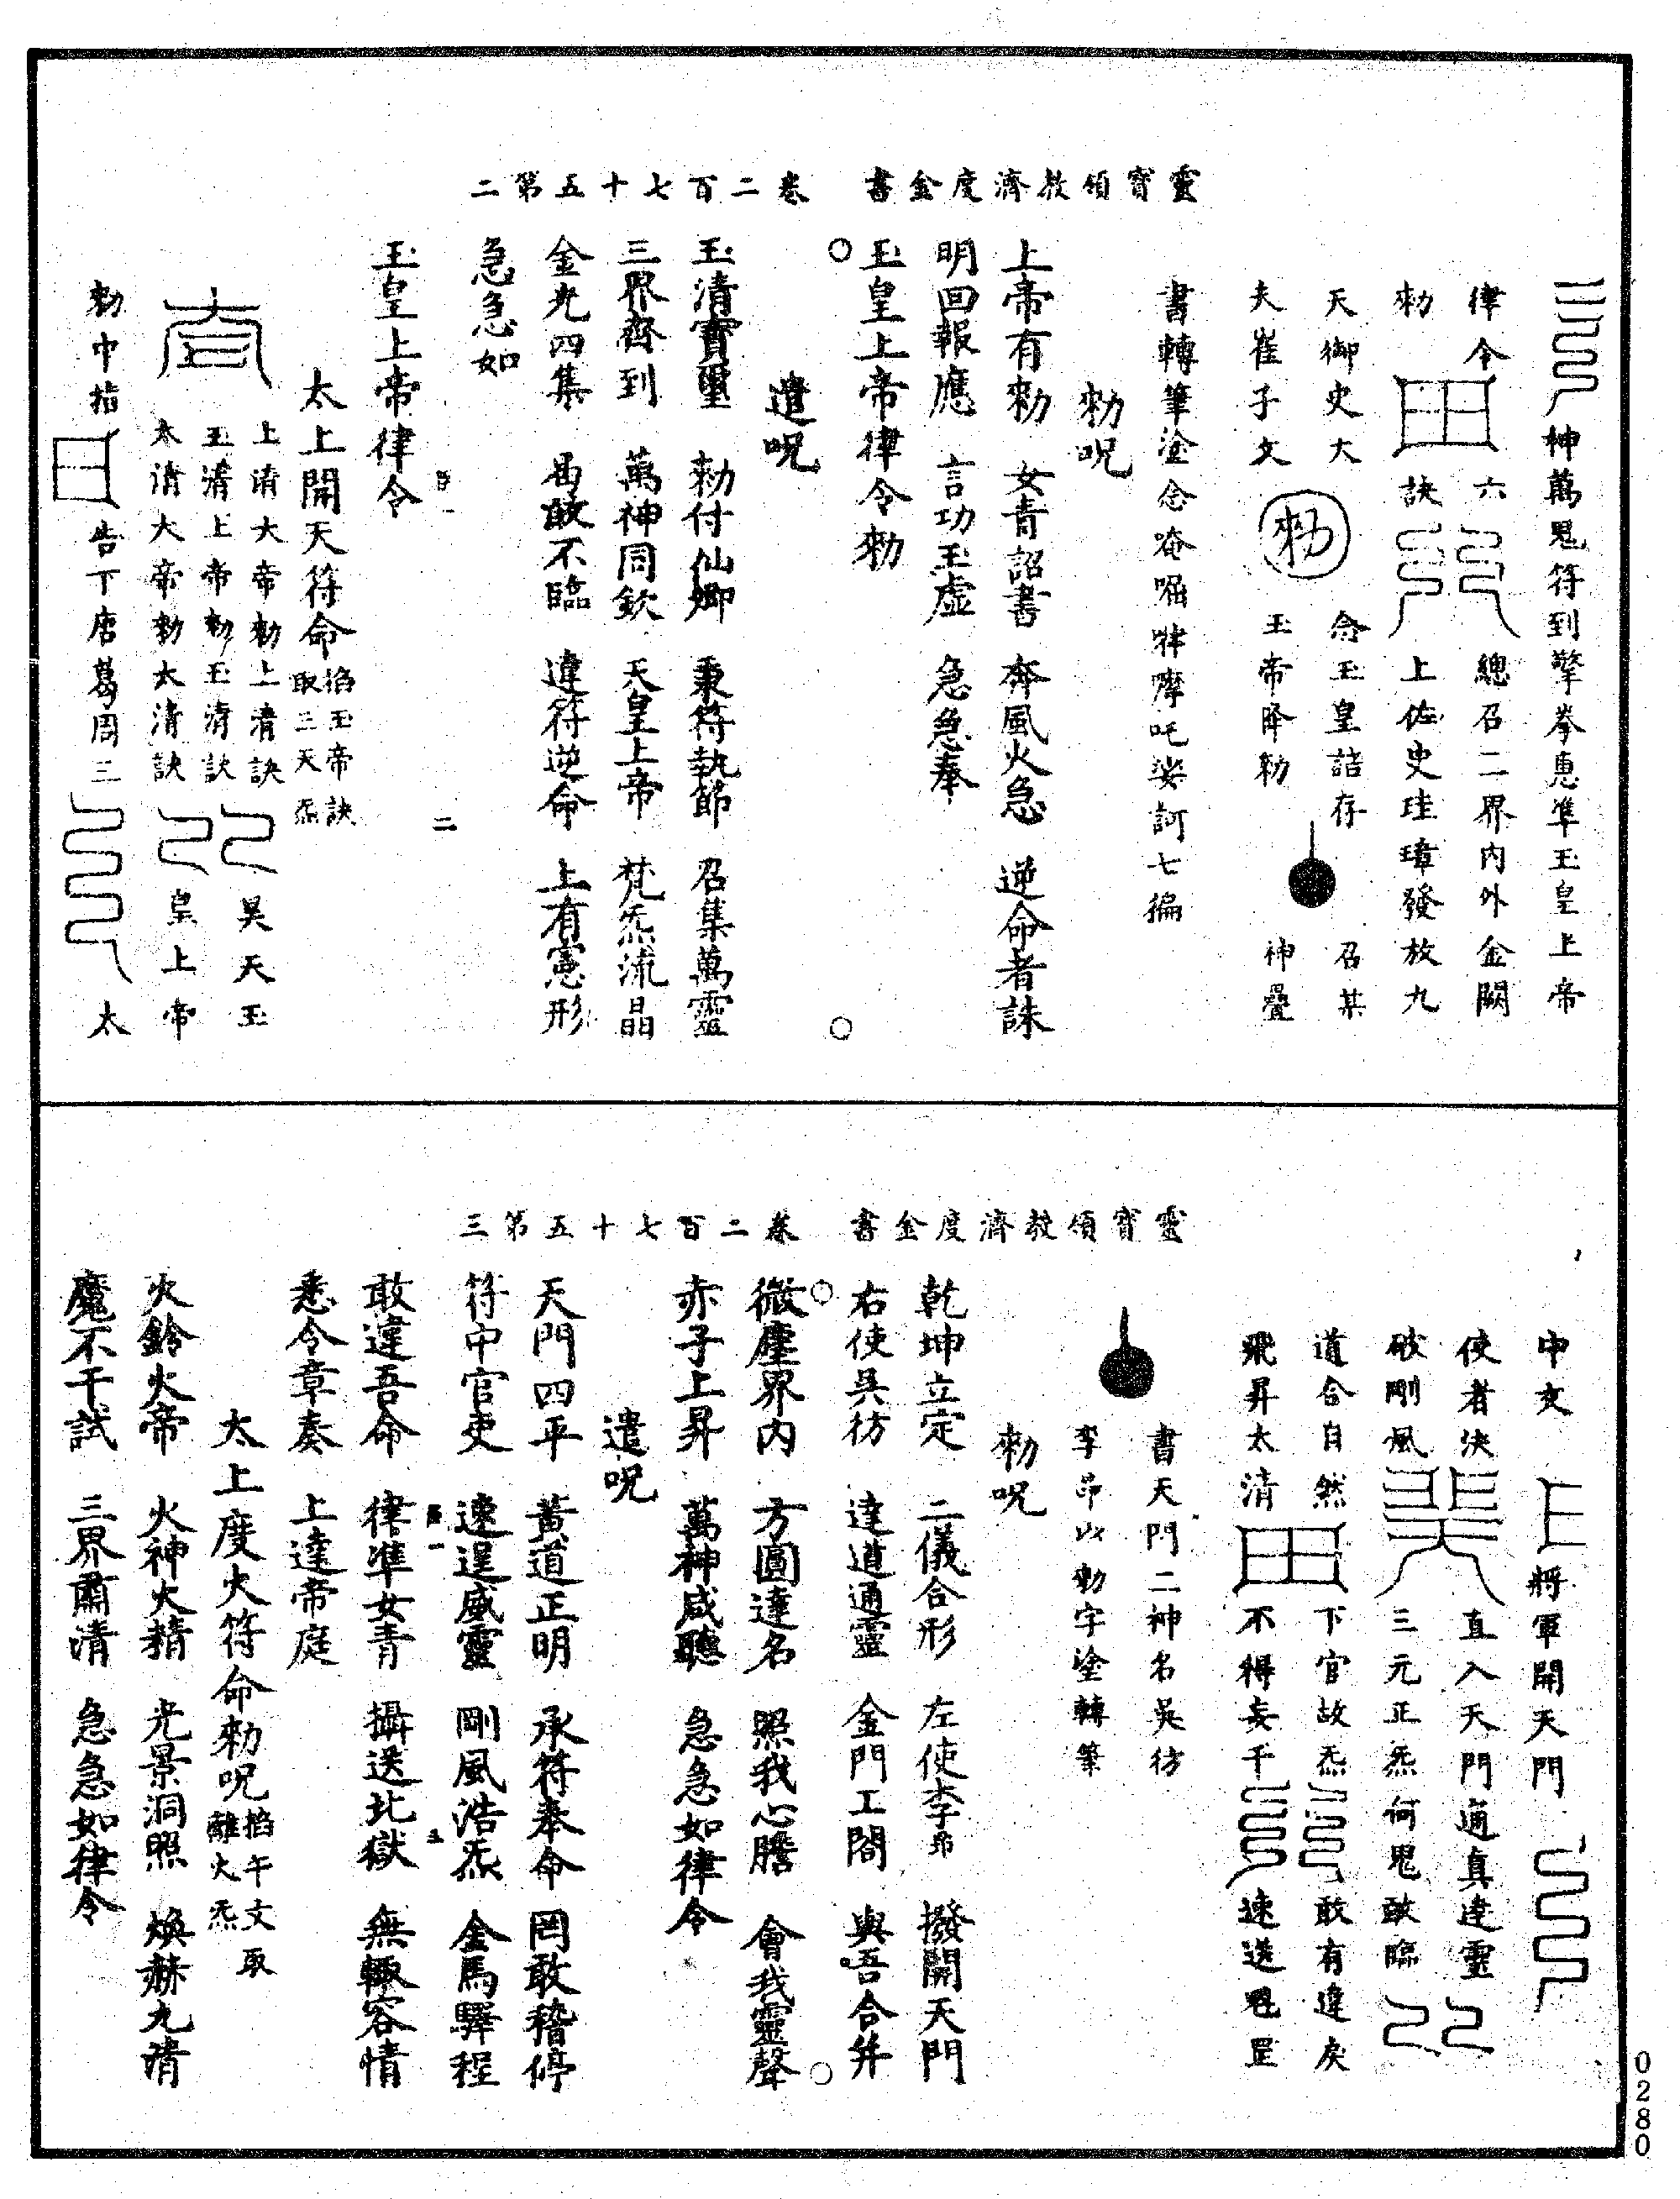 靈寶領教濟度金書　卷二百七十五第二
神萬鬼符到擎拳惠准玉皇上帝
律令　六　總召二界內外金闕
勑　訣　上佐史珪璋發放九
天御史大　念玉皇誥存　召某
夫崔子文　勑　玉帝降勑　神疊
書轉筆塗念唵𠺁摩吒娑訶七徧
勑呪
上帝有勑　女青詔書　奔風火急　逆命者誅
明回報應　言功玉虛　急急奉
玉皇上帝律令勑
遣呪
玉清寶璽　勑付仙卿　秉符執節　召集萬靈
三界齊到　萬神同欽　天皇上帝　梵炁流晶
金光四集　曷敢不臨　違符逆命　上有憲形
急急如
玉皇上帝律令
二
太上開天符命掐玉帝訣
取三天炁
上清大帝勑上清訣　昊天玉
玉清上帝勑玉清訣
太清大帝勑太清訣　皇上帝
勑中指　告下唐葛周三　太
靈寶領教濟度金書　卷二百七十五第三
中文　將軍開天門
使者決　直入天門通真達靈
破剛風　三元正炁何鬼敢臨
道合自然　下官故炁　敢有違戾
飛昇太清　不得妄干　速送魁罡
書天門二神名吳彷
李昂以勑字塗轉筆
勑呪
乾坤立定　二儀合形　左使李昂　撥開天門
右使吳彷　達道通靈　金門工閤　與吾合并
微塵界內　方圓達名　照我心膽　會我靈聲
赤子上昇　萬神咸聽　急急如律令
遣呪
天門四平　黃道正明　承符奉命　罔敢稽停
符中官吏　速逞威靈　剛風浩炁　金馬驛程
三
敢違吾命　律准女青　攝送北獄　無輙容情
悉令章奏　上達帝庭
太上度火符命勑呪掐午文取
離火炁
火鈴火帝　火神火精　光景洞照　煥赫九清
魔不干試　三界肅清　急急如律令
0280